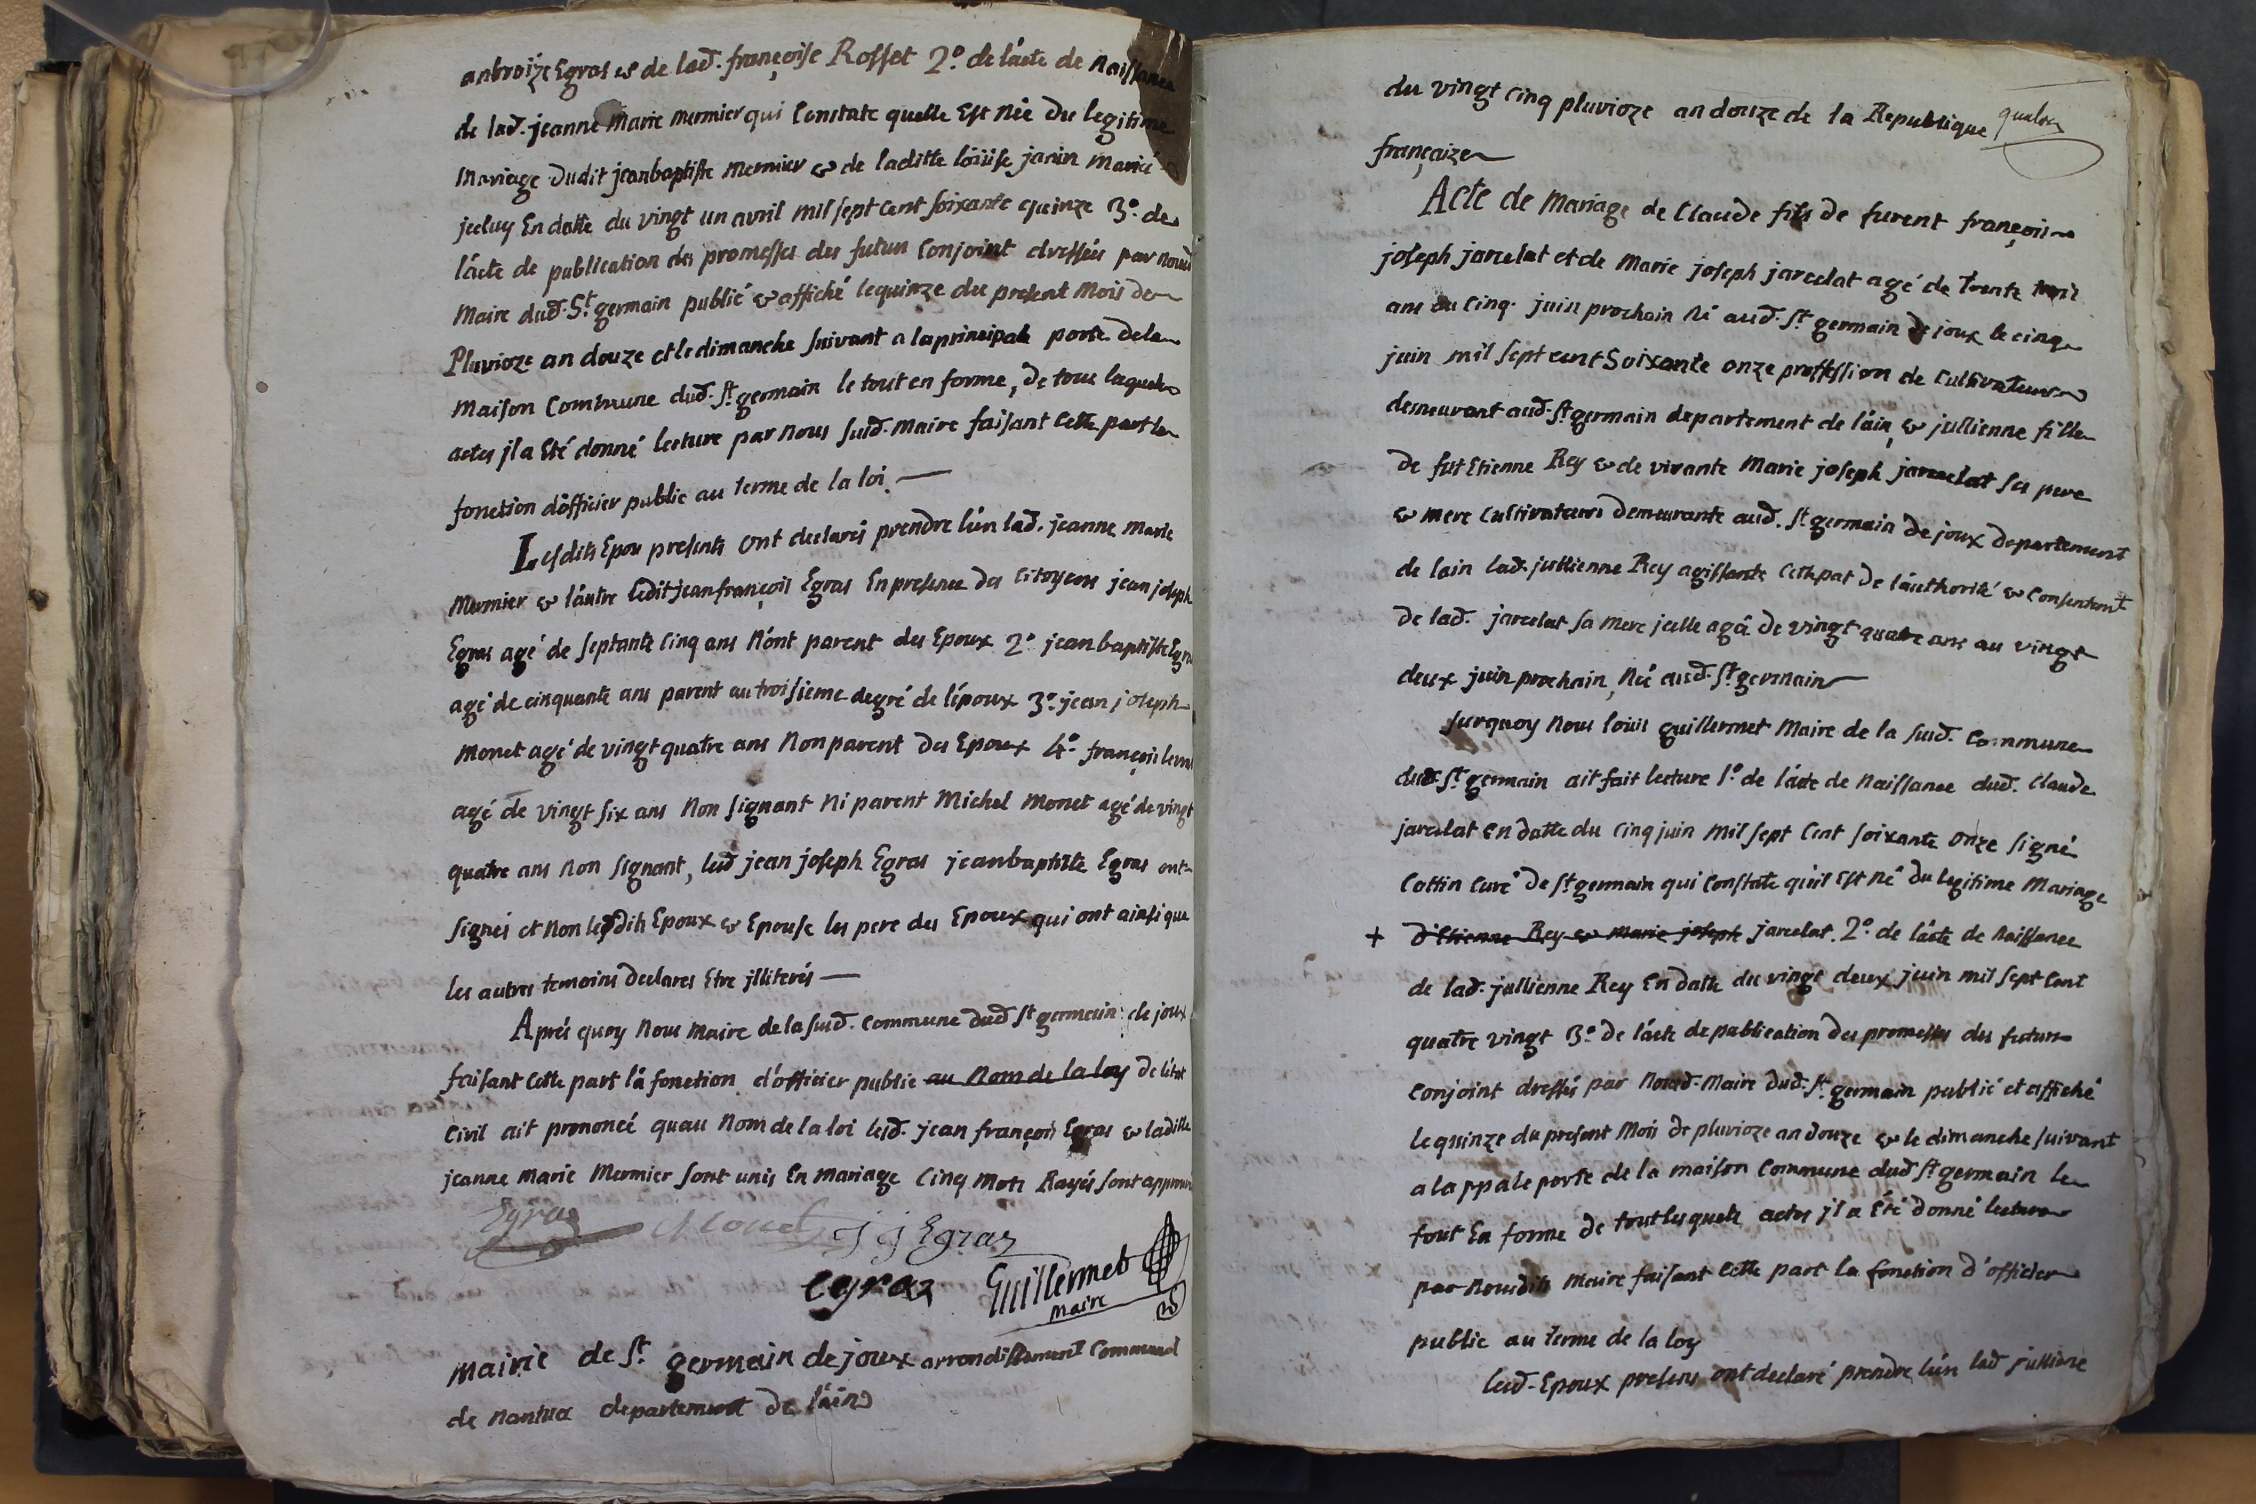 anbroize Egras et de lad. françoise Rosset 2.° de lácte de Naissance
de lad. jeanne Marie mermier qui Constate quelle Est Née Du legitime
Mariage Dudit jeanbaptiste Mermier & de laditte loüise janin Marié
jceluy En datte du vingt un avril mil sept Cent soixante quinze 3.° de
lácte de publication des promesses des futun Conjoint dressées par Nousd
Maire dud. St. germain publié & affiché lequinze du present Mois de
Pluvioze an douze et le dimanche suivant a la principale porte dela
Maison Commune dud. St. germain le tout en forme, de tous laquels
actes jl a Eté donné lecture par nous susd. Maire faisant Cette part la
fonction dófficier public au terme de la loi. —
Lesdits Epou presents ont declarés prendre lún lad. jeanne Marie
Mermier & láutre ledit jean françois Egras En presence des Citoyens jean joseph
Egras agé de septante Cinq ans Nónt parent des Epoux 2.° jean baptiste Egra
agé de cinquante ans parent au troisieme degré de lépoux 3.° jean joseph
Monet agé de vingt quatre ans Non parent des Epoux 4.° françois
agé de vingt six ans Non signant Ni parent Michel Monet agé de vingt
quatre ans Non signant, lesd jean joseph Egras jeanbaptiste Egras ont
signés et Non lesdits Epoux & Epouse les pere des Epoux qui ont ainsi que
les autres temoins declares Etre jlliterés —
Aprés quoy Nous Maire de la susd. Commune dud St germain de joux
faisant Cette part lá fonction d'officier public au Nom de la loy de létat
Civil ait prononcé quau Nom de la loi lesd. jean françois Egras & laditte
jeanne Marie Mermier sont unis En Mariage Cinq Mots Rayés sont approuv
Egras Monet j j Egraz
Egraz Guillermet
maire
Mairie de St. germain de joux arrondissement Communal
de Nantua departement De láin
du vingt Cinq pluvioze an douze de la Republique
françaize
Acte de Mariage de Claude fils de furent françois
joseph jarcelat et de Marie joseph jarcelat agé de trente trois
ans au Cinq juin prochain Né aud. St. germain de joux le cinq
juin mil sept cent Soixante onze proffession de Cultivateur
demeurant aud. St. germain departement de láin, & jullienne fille
de fut Etienne Rey & de vivante Marie joseph jarcelat ses pere
& mere Cultivateurs Demeurante aud. St. germain de joux departement
de lain lad. jullienne Rey agissante Cette pat de láuthorité & Consentent
De lad. jarcelat sa mere jcelle agée de vingt quatre ans au vingt
deux juin prochain, Née aud. St. germain
surquoy Nous louis guillermet Maire de la susd. Commune
dud. St. germain ait fait lecture 1.° de lácte de Naissance dud. Claude
jarcelat En datte du Cinq juin Mil sept Cent soixante onze signé
Cottin Curé De St. germain qui Constate quíl Est Né Du legitime Mariage
+ d'Etienne Rey & marie joseph jarcelat. 2.° de lácte de Naissance
de lad. jullienne Rey En datte du vingt deux juin mil sept Cent
quatre vingt 3.° De lácte de publication des promesses des futurs
Conjoint dressés par Nousd. Maire dud. St. germain publié et affiché
le quinze du present Mois de pluvioze an douze & le dimanche suivant
a la ppale porte de la maison Commune dud St. germain le
tout En forme de tout lesquels actes jl a Eté donné lecture
par Nousdits Maire faisant Cette part la fonction d'officier
public au terme de la loy
lesd. Epoux presens ont declaré prendre lún lad jullienne